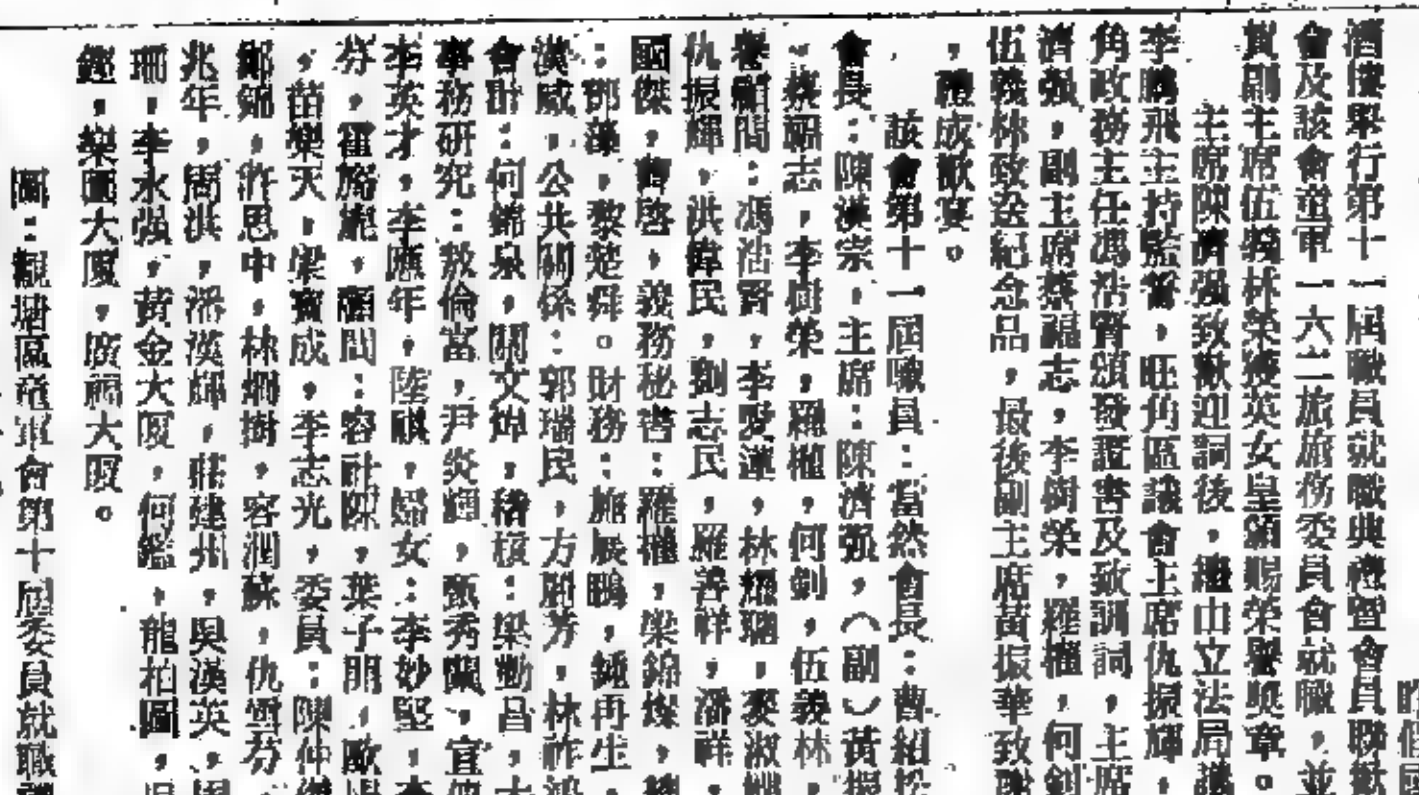 昨假國
酒樓舉行第十一屆職員就職典禮暨會員聯歡
會及該會童軍一六二旅旅務委員會就職，並
賀副主席伍義林榮獲英女皇頒賜榮譽獎章。
主席陳濟強致歡迎詞後，繼由立法局議
李鵬飛主持監誓，旺角區議會主席仇振輝，
角政務主任馮浩賢頒發證書及致訓詞，主席
濟強，副主席蔡福志，李樹榮，羅權，何釗
伍義林致送紀念品，最後副主席黃振華致謝
，禮成歡宴。
該會第十一屆職員：當然會長：曹紹松
會長：陳漢宗，主席：陳濟強，（副）黃振
，蔡福志，李樹榮，羅權，何釗，伍義林，
老顧問：馮浩賢，李 運，林 ，麥淑
仇振輝，洪偉民，劉志民，羅善祥，潘祥，
國傑，曹啓，義務秘書：羅權，梁錦燦，總
：鄧 ，黎楚舜。財務：施展鵬，鍾再生
漢威，公共關係：郭瑞民，方 芳，林祚
會計：何錦泉，關文焯，稽核：梁勤昌，
事務研究：敖倫富，尹炎輝，甄秀蘭，宣
李英才，李應年，陸 ，婦女：李妙堅，李
芬，霍 ，顧問：容社 ，葉子朋，歐
，苗樂天，梁寶成，李志光，委員：陳仲
鄭錦，許思中，林炯樹，容潤蘇，仇雪芬
兆年，周洪，潘漢輝，莊建州，吳漢英，周
珊，李水強，黃金大廈，何鑑，龍柏圖，
鏗，樂 大廈，廣福大廈。
圖：觀塘區童軍會第十屆委員就職